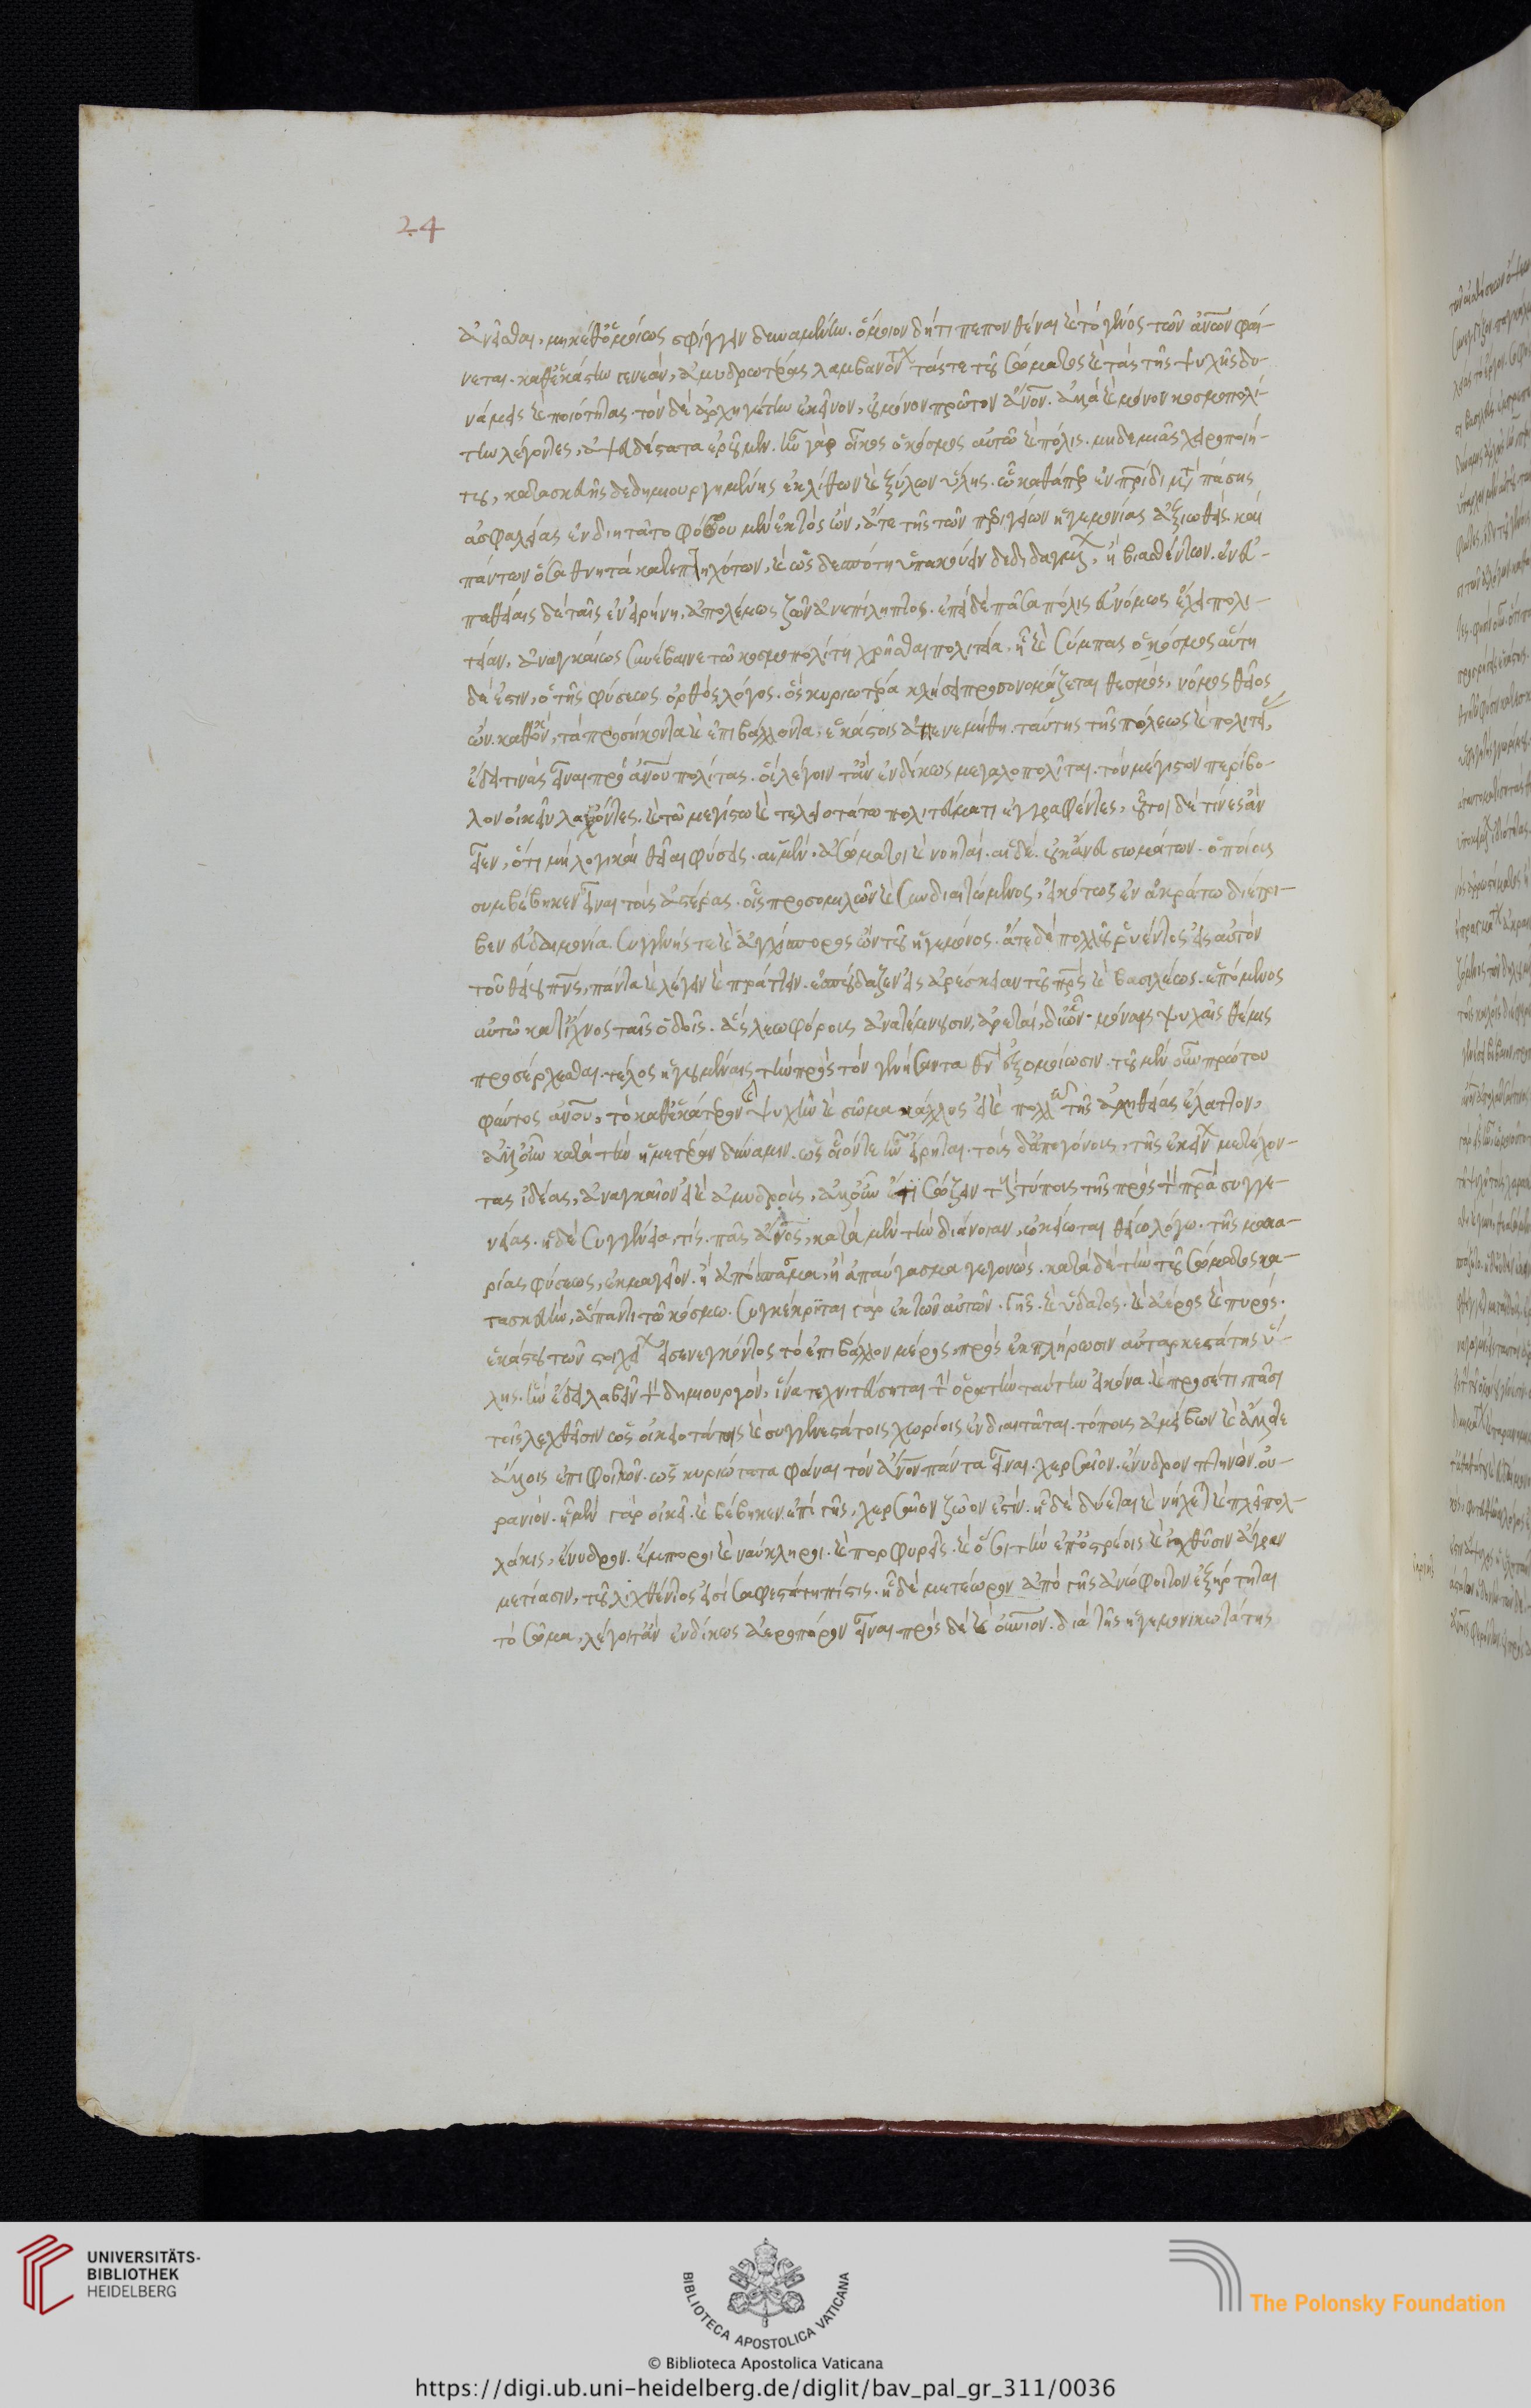 24
ἀνεῖσθαι, μηκέθ' ὁμοίως σφίγγειν δυναμένην. ὅμοιον δή τι πεπονθέναι καὶ τὸ γένος τῶν ἀνων φαί-
νεται. καθ' ἑκάστην γενεάν, ἀμυδροτέρας λαμβανόντων τάς τε τοῦ σώματος καὶ τὰς τῆς ψυχῆς δυ-
νάμεις καὶ ποιότητας. τὸν δὲ ἀρχηγέτην ἐκεῖνον, οὐ μόνον πρῶτον ἄνον. ἀλλὰ καὶ μόνον κοσμοπολί-
την λέγοντες, ἀψευδέστατα ἐροῦμεν. ἦν γὰρ οἶκος ὁ κόσμος αὐτῷ καὶ πόλις. μηδεμιᾶς χειροποιή-
του, κατασκευῆς δεδημιουργημένης ἐκ λίθων καὶ ξύλων ὕλης. ᾧ καθάπερ ἐν πρίδι μετὰ πάσης
ἀσφαλείας ἐνδιητᾶτο φόβου μὲν ἐκτὸς ὤν, ἅτε τῆς τῶν περιγείων ἡγεμονίας ἀξιωθείς. καὶ
πάντων ὅσα θνητὰ κατεπτηχότων, καὶ ὡς δεσπότῃ ὑπακούειν δεδιδαγμένων, ἢ βιασθέντων. ἐν εὐ-
παθείαις δὲ ταῖς ἐν εἰρήνῃ, ἀπολέμως ζῶν ἀνεπίληπτος. ἐπεὶ δὲ πᾶσα πόλις εὔνομος ἔχει πολι-
τείαν, ἀναγκαίως συνέβαινε τῷ κοσμοπολίτῃ χρῆσθαι πολιτείᾳ. ᾗ καὶ σύμπας ὁ κόσμος αὕτη
δέ ἐστιν, ὁ τῆς φύσεως ὀρθὸς λόγος. ὃς κυριωτέρᾳ κλήσει προσονομάζεται θεσμός, νόμος θεῖος
ὤν. καθ' ὅν, τὰ προσήκοντα καὶ ἐπιβάλλοντα, ἑκάστοις ἀπενεμήθη. ταύτης τῆς πόλεως καὶ πολιτείας,
ἔδει τινὰς εἶναι πρὸ ἀνου πολίτας. οἳ λέγοιντ' ἂν ἐνδίκως μεγαλοπολῖται. τὸν μέγιστον περίβο-
λον οἰκεῖν λαχόντες. καὶ τῷ μεγίστῳ καὶ τελειοτάτῳ πολιτεύματι ἐγγραφέντες, οὗτοι δὲ τίνες ἂν
εἶεν, ὅτι μὴ λογικαὶ θεῖαι φύσεις. αἱ μέν, ἀσώματοι καὶ νοηταί. αἱ δέ, οὐκ ἄνευ σωμάτων. ὁποίους
συμβέβηκεν εἶναι τοὺς ἀστέρας. οἷς προσομιλῶν καὶ συνδιαιτώμενος, εἰκότως ἐν ἀκράτῳ διέτρι-
βεν εὐδαιμονίᾳ. συγγενής τε καὶ ἀγχίσπορος ὢν τοῦ ἡγεμόνος. ἅτε δὴ πολλοῦ ῥυέντος εἰς αὐτὸν
τοῦ θείου πνς, πάντα καὶ λέγειν καὶ πράττειν. ἐσπούδαζεν εἰς ἀρέσκειαν τοῦ πρς καὶ βασιλέως. ἑπόμενος
αὐτῷ κατ' ἴχνος ταῖς ὁδοῖς. ἃς λεωφόρους ἀνατέμνουσιν, ἀρεταί, διότι μόναις ψυχαῖς θέμις
προσέρχεσθαι. τέλος ἡγουμέναις τὴν πρὸς τὸν γεννήσαντα θν ἐξομοίωσιν. τοῦ μὲν οὖν πρώτου
φύντος ἀνου, τὸ καθ' ἑκάτερον ψυχήν τε καὶ σῶμα κάλλος εἰ καὶ πολλῷ τῆς ἀληθείας ἔλαττον,
ἀλλ' οὖν κατὰ τὴν ἡμετέραν δύναμιν. ὡς οἷόν τε ἦν εἴρηται. τοὺς δ' ἀπογόνους, τῆς ἐκείνου μετέχον-
τας ἰδέας, ἀναγκαῖον εἰ καὶ ἀμυδρούς, ἀλλ' οὖν ἔτι σῴζειν τοὺς τύπους τῆς πρὸς τὸν πρα συγγε-
νείας. ἡ δὲ συγγένεια, τίς. πᾶς ἄνος, κατὰ μὲν τὴν διάνοιαν, ᾠκείωται θείῳ λόγῳ. τῆς μακα-
ρίας φύσεως, ἐκμαγεῖον. ἢ ἀπόσπασμα, ἢ ἀπαύγασμα γεγονώς. κατὰ δὲ τὴν τοῦ σώματος κα-
τασκευήν, ἅπαντι τῷ κόσμῳ. συγκέκριται γὰρ ἐκ τῶν αὐτῶν. γῆς. καὶ ὕδατος. καὶ ἀέρος καὶ πυρός.
ἑκάστου τῶν στοιχείων εἰσενεγκόντος τὸ ἐπιβάλλον μέρος, πρὸς ἐκπλήρωσιν αὐταρκεστάτης ὕ-
λης. ἣν ἔδει λαβεῖν τὸν δημιουργόν, ἵνα τεχνιτεύσηται τὴν ὁρατὴν ταύτην εἰκόνα. καὶ προσέτι, πᾶσι
τοῖς λεχθεῖσιν ὡς οἰκειοτάτοις καὶ συγγενεστάτοις χωρίοις ἐνδιαιτᾶται. τόπους ἀμείβων καὶ ἄλλοτε
ἄλλοις ἐπιφοιτῶν. ὡς κυριώτατα φάναι τὸν ἄνον πάντα εἶναι. χερσαῖον. ἔνυδρον πτηνόν. οὐ-
ράνιον. ᾗ μὲν γὰρ οἰκεῖ. καὶ βέβηκεν ἐπὶ γῆς, χερσαῖον ζῷον ἐστίν. ᾗ δὲ δύεται καὶ νήχεται καὶ πλεῖ πολ-
λάκις, ἔνυδρον. ἔμποροι καὶ ναύκληροι. καὶ πορφυρεῖς. καὶ ὅσοι τὴν ἐπ' ὀστρέοις καὶ ἰχθύσιν ἄγραν
μετίασιν, τοῦ λεχθέντος εἰσὶ σαφεστάτη πίστις. ᾗ δὲ μετέωρον ἀπὸ γῆς ἀνώφοιτον ἐξήρτηται
τὸ σῶμα, λέγοιτ' ἂν ἐνδίκως ἀεροπόρον εἶναι πρὸς δὲ καὶ οὐνιον. διὰ τῆς ἡγεμονικωτάτης
UNIVERSITÄTS-
BIBLIOTHEK
HEIDELBERG
BIBLIOTECA APOSTOLICA VATICANA
The Polonsky Foundation
© Biblioteca Apostolica Vaticana
https://digi.ub.uni-heidelberg.de/diglit/bav_pal_gr_311/0036